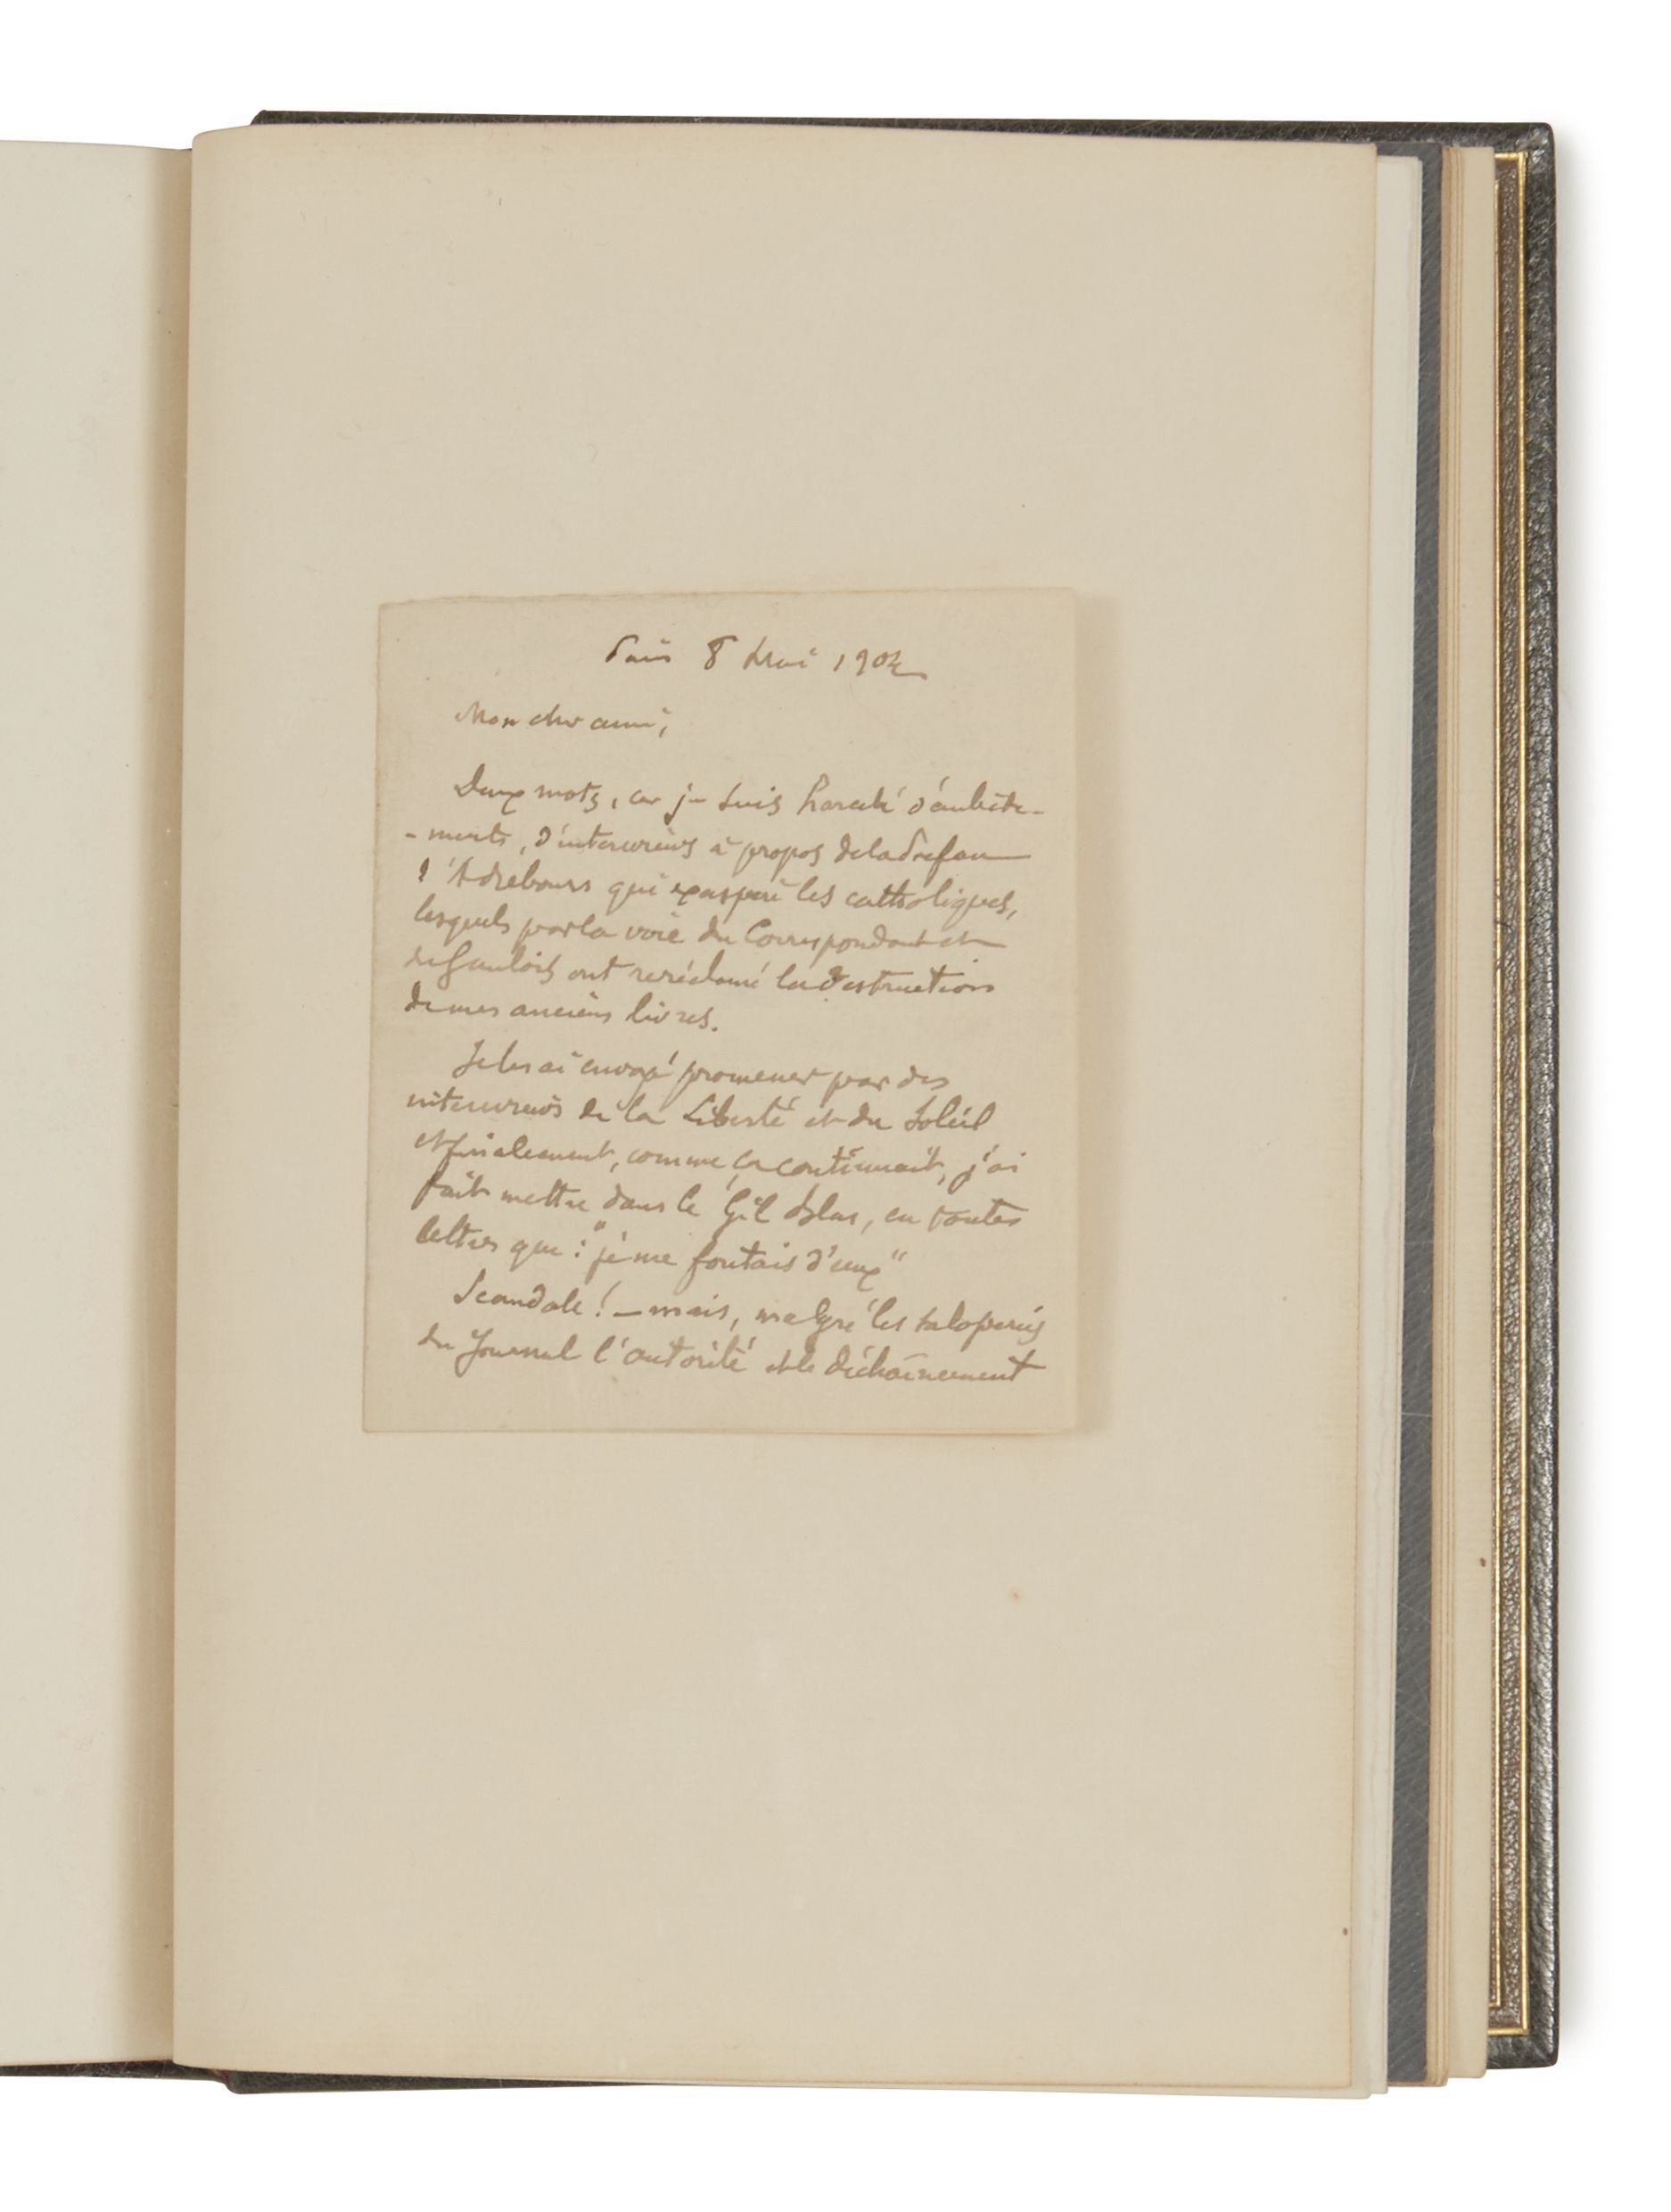 Paris 8 Mai 1904
Mon cher ami,
Deux mots, car je suis harcelé d'embête-
-ments, d'interwiews à propos de la Préface
d'A rebours qui exaspère les catholiques,
lesquels par la voie du Correspondant et
du Gaulois ont reréclamé la destruction
de mes anciens livres.
Je les ai envoyé promener par des
interwiews de la Liberté et du Soleil
et finalement, comme ça continuait, j'ai
fait mettre dans le Gil Blas, en toutes
lettres que : "je me foutais d'eux"
Scandale! — mais, malgré les saloperies
du Journal l'autorité et le déchaînement